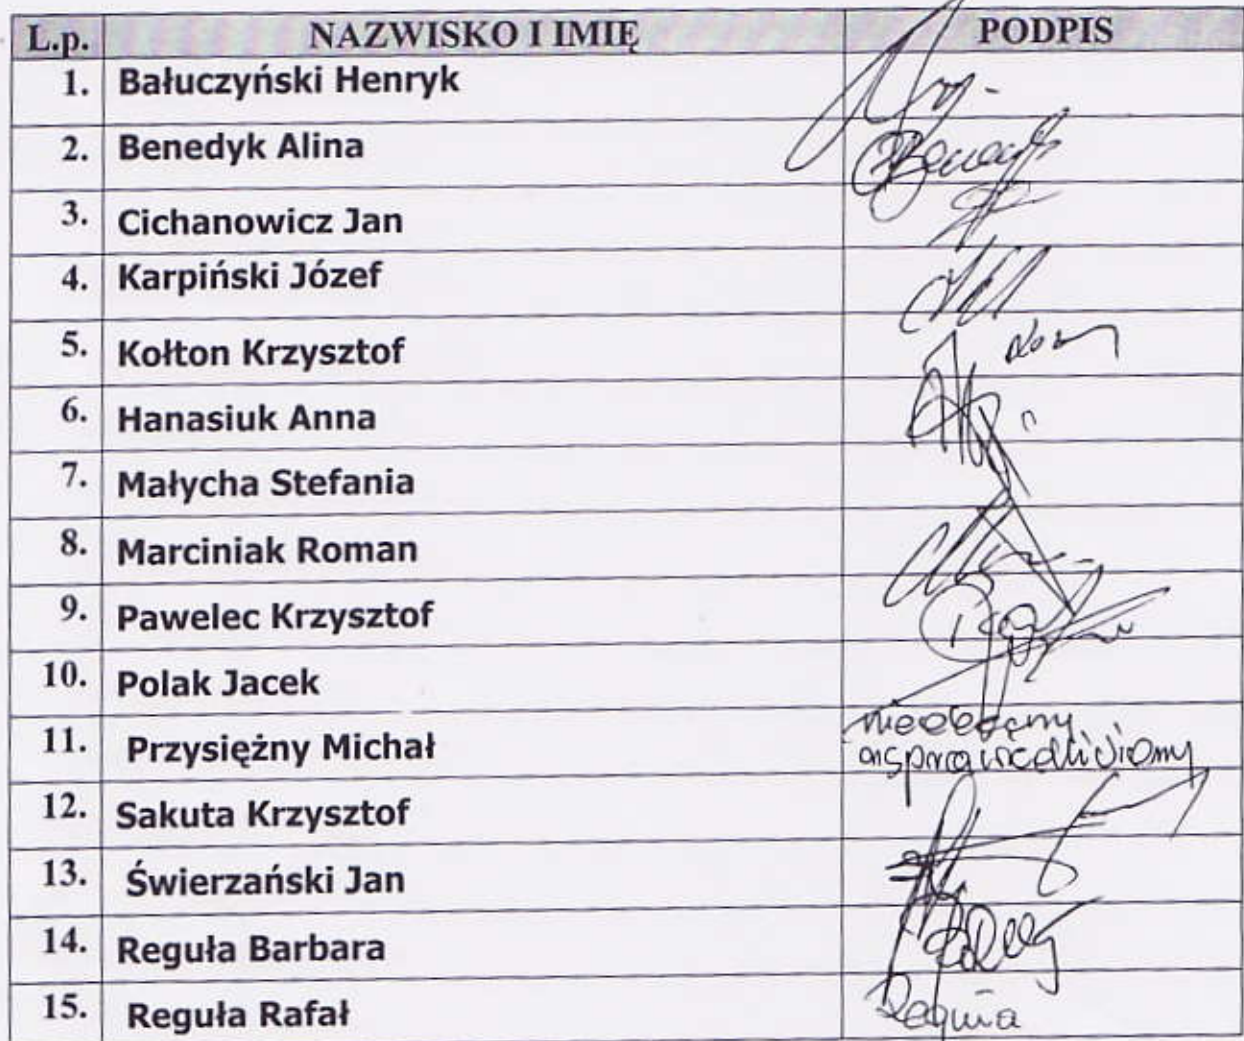 L.p. NAZWISKO I IMIĘ PODPIS
1. Bałuczyński Henryk
2. Benedyk Alina
3. Cichanowicz Jan
4. Karpiński Józef
5. Kołton Krzysztof
6. Hanasiuk Anna
7. Małycha Stefania
8. Marciniak Roman
9. Pawelec Krzysztof
10. Polak Jacek
11. Przysiężny Michał nieobecny
usprawiedliwiony
12. Sakuta Krzysztof
13. Świerzański Jan
14. Reguła Barbara
15. Reguła Rafał Reguła